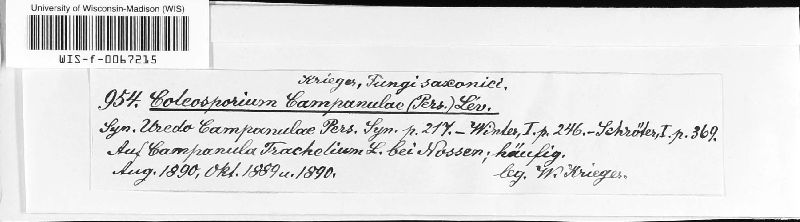 University of Wisconsin-Madison (WIS)
WIS-f-0067215
Krieger, Fungi saxonici.
954. Coleosporium Campanulae (Pers.) Lév.
Syn. Uredo Campanulae Pers. Syn. p. 217. – Winter, I. p. 246. – Schröter, I. p. 369.
Auf Campanula Trachelium L. bei Nossen; häufig.
Aug. 1890, Okt. 1889 u. 1890. leg. W. Krieger.